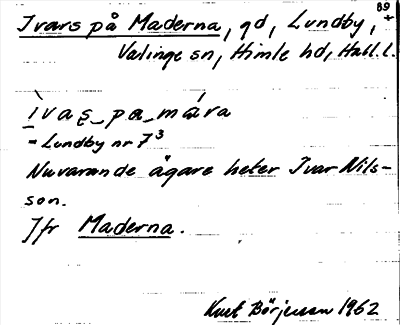 89
Ivars på Maderna, gd, Lundby, +
Valinge sn, Himle hd, Hall. l.
ìvas_pa_mára
= Lundby nr 7³
Nuvarande ägare heter Ivar Nils-
son.
Jfr Maderna.
Kurt Börjesson 1962